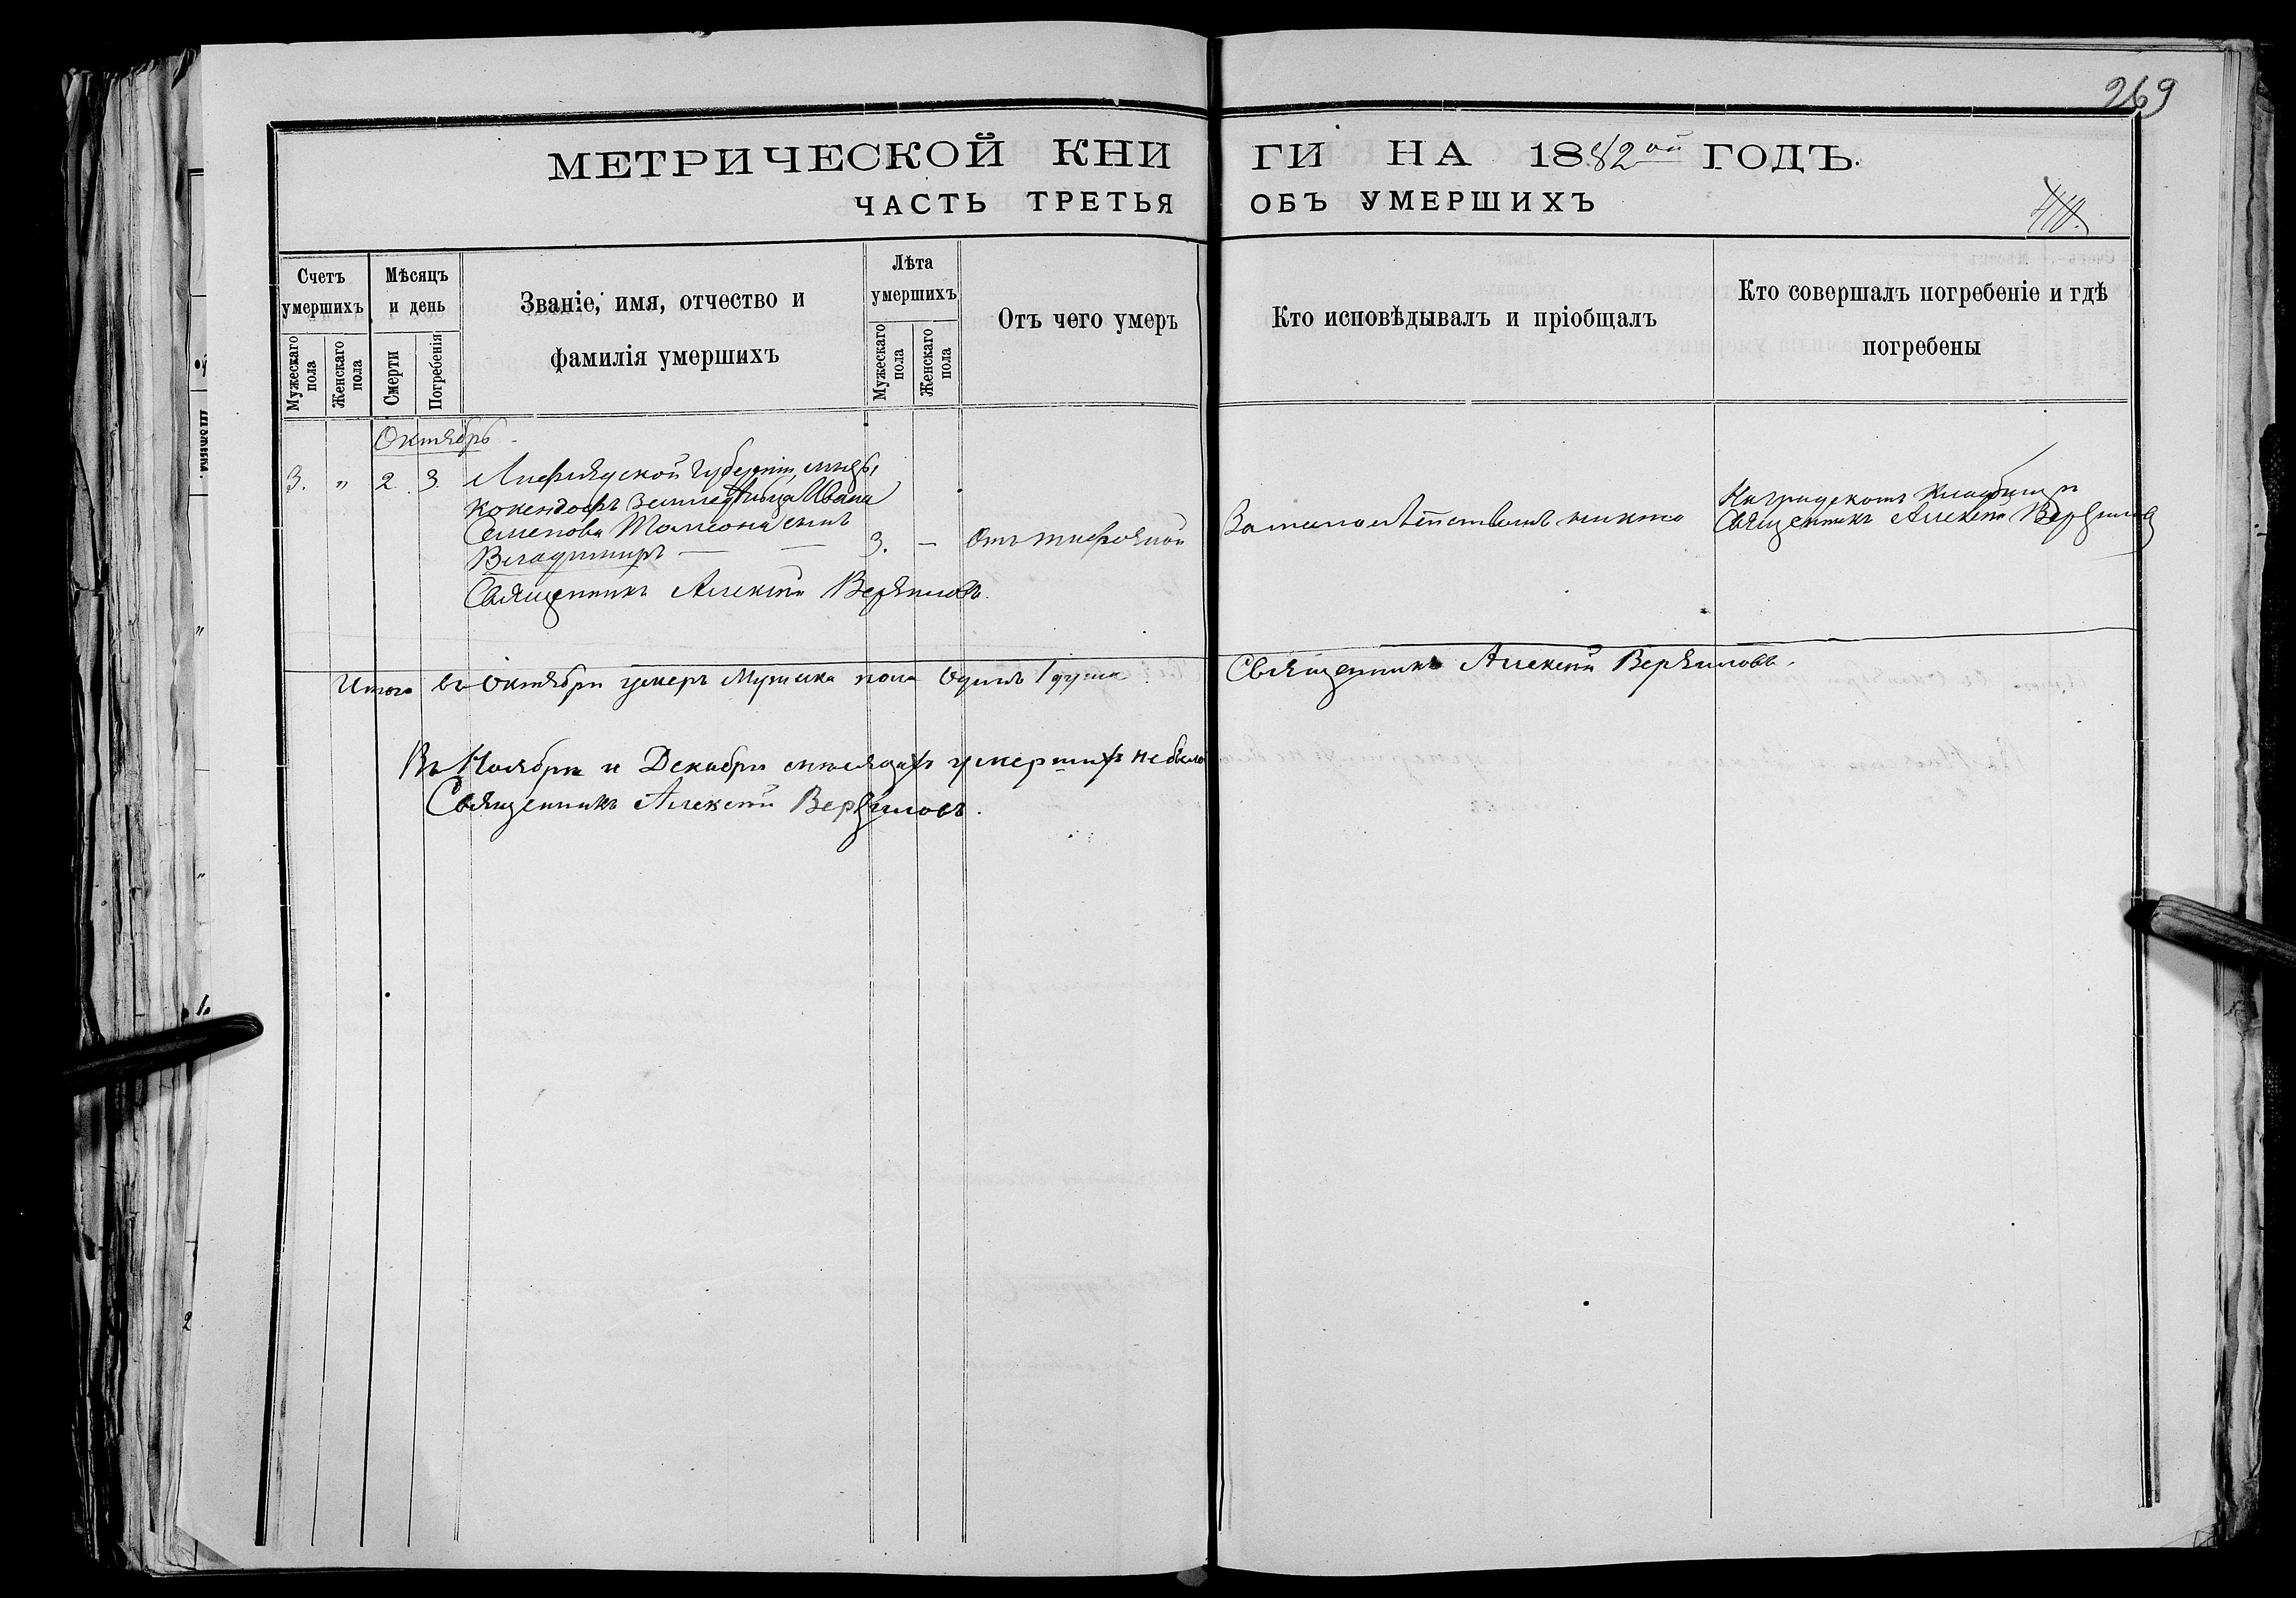 269
МЕТРИЧЕСКОЙ КНИ ГИ НА 1882ой ГОДЪ.
ЧАСТЬ ТРЕТЬЯ ОБЪ УМЕРШИХЪ
Счетъ умершихъ
Мужескаго пола
Женскаго пола
Мѣсяцъ и день
Смерти
Погребенія
Званіе, имя, отчество и
фамилія умершихъ
Лѣта умершихъ
Мужескаго пола
Женскаго пола
Отъ чего умеръ
Кто исповѣдывалъ и пріобщалъ
Кто совершалъ погребеніе и гдѣ
погребены
Октябрь
3. " 2. 3. Лифлядской Губерніи,
Ивана
Семенова Томсона сынъ
Владимиръ — — 3. —
Священникъ Алексѣй Верзиловъ.
никто
На градскомъ кладбищѣ
Священникъ Алексѣй Верзиловъ
Итого въ Октябрѣ умеръ Мужска пола Одинъ 1 душа.
Священникъ Алексѣй Верзиловъ.
Въ Ноябрѣ и Декабрѣ мѣсяцахъ умершихъ не было
Священникъ Алексѣй Верзиловъ.